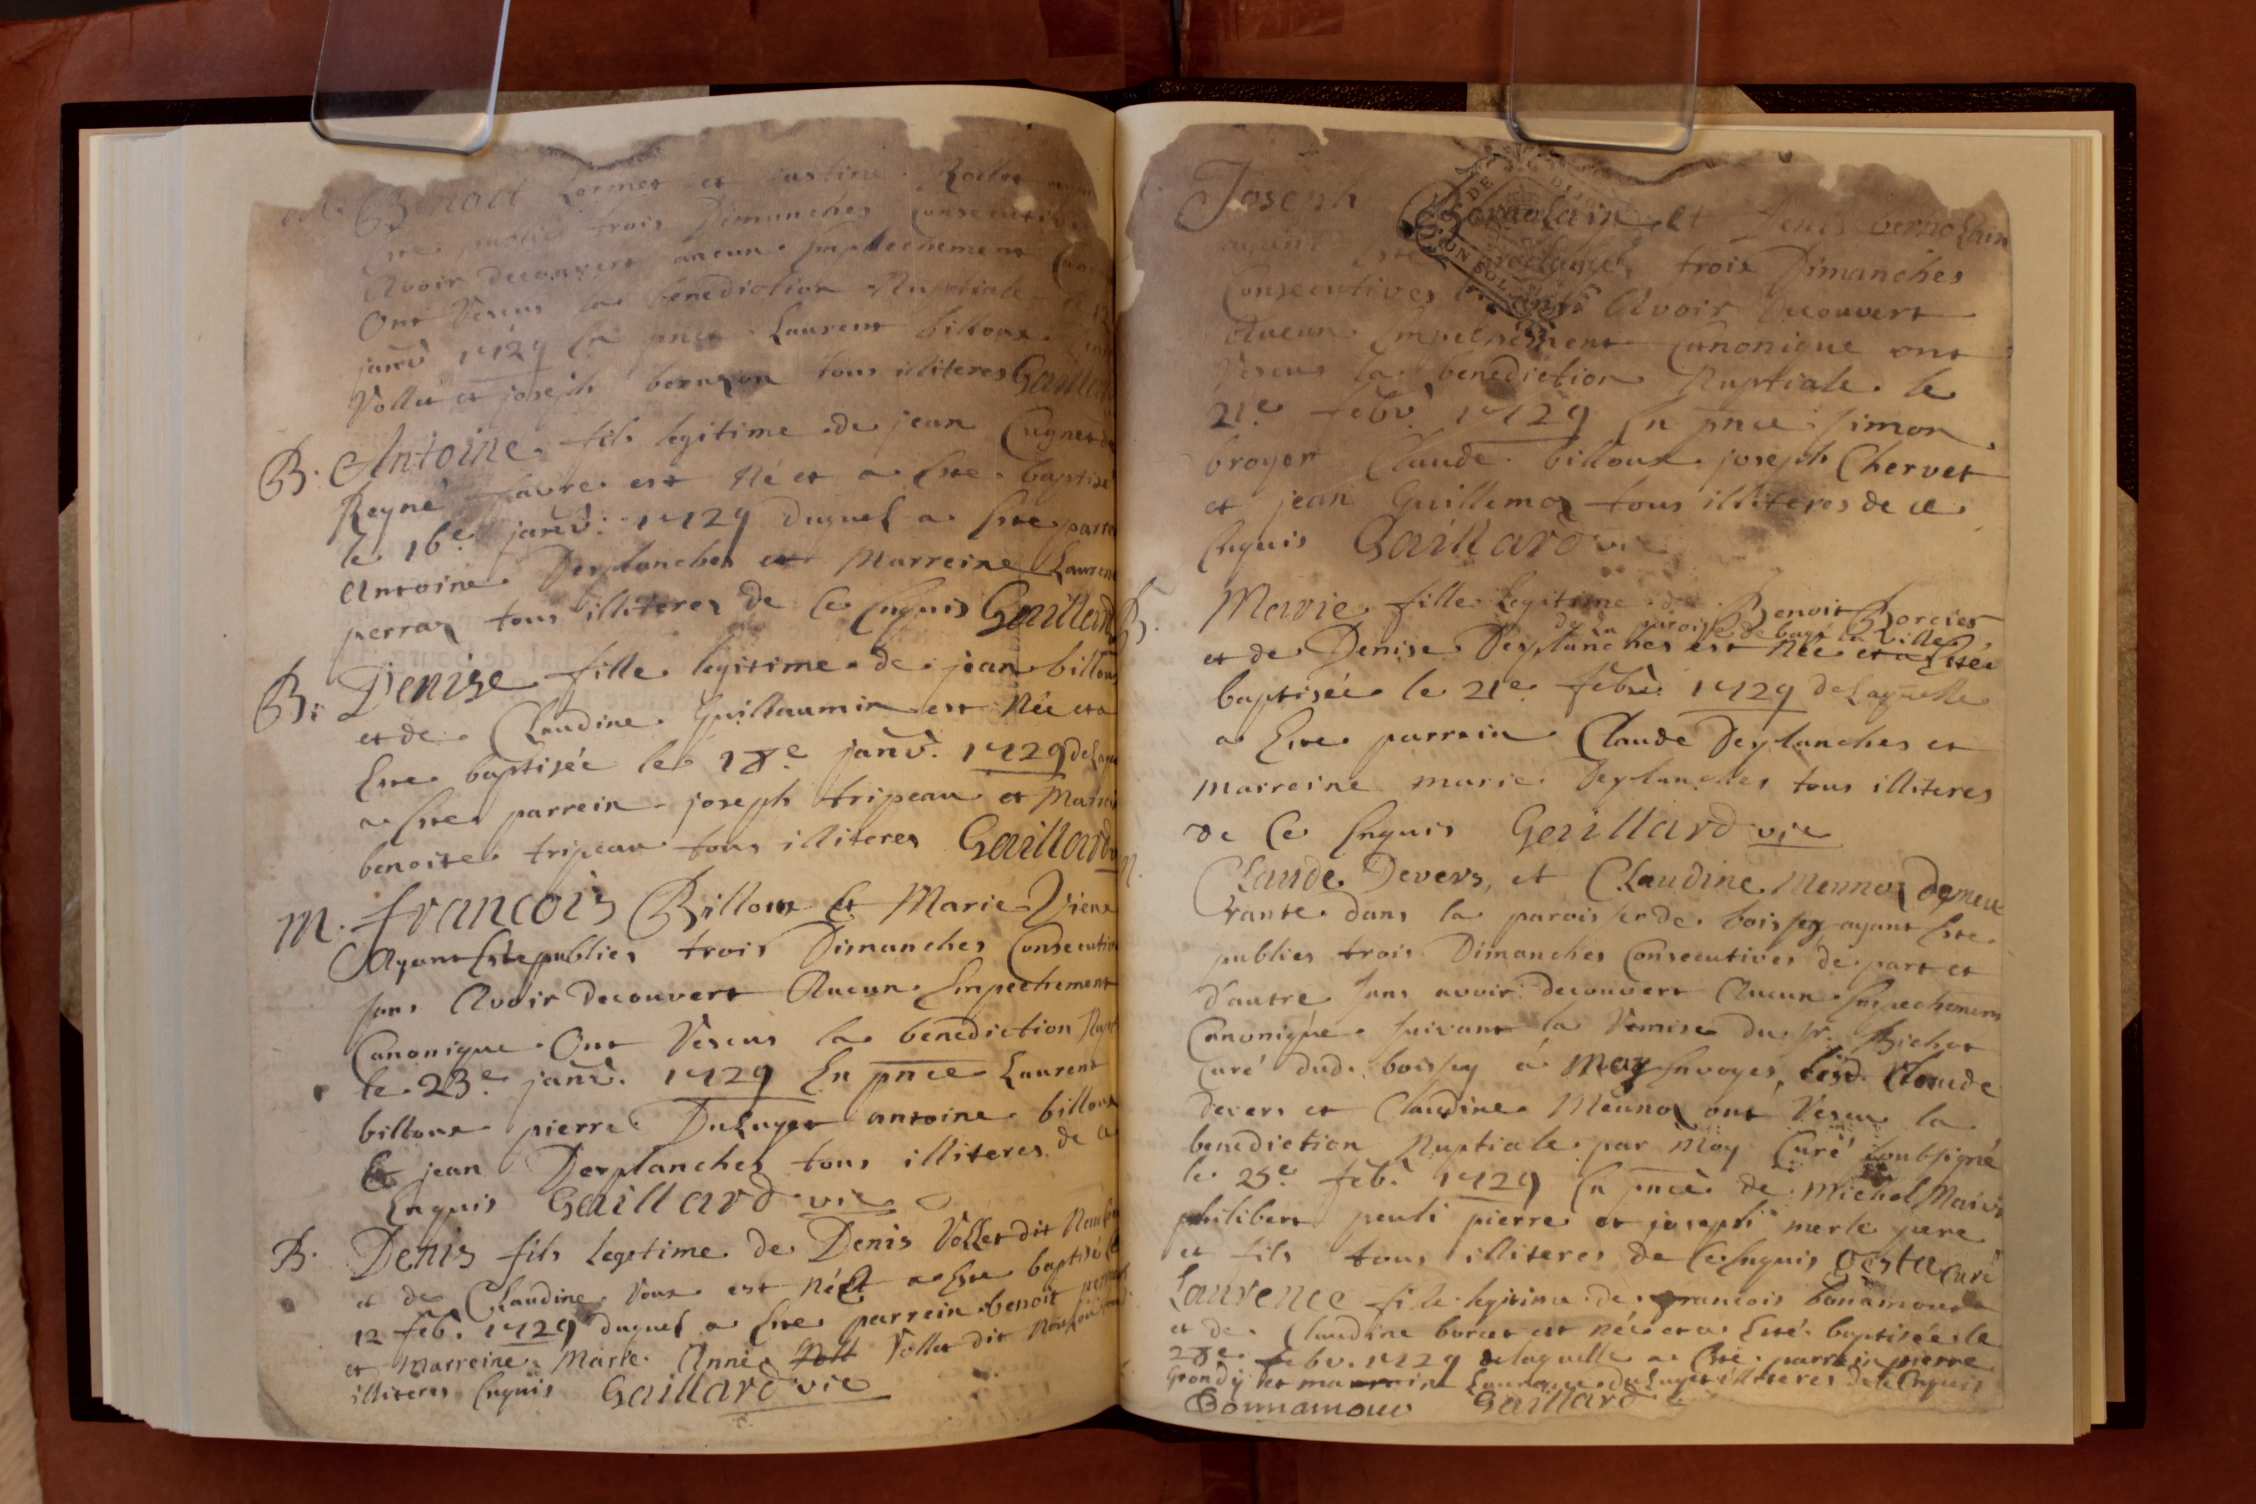 Benoit Cormet et justine
Este publies trois Dimanches Consecutiv
Avoir decouvert aucun Empechement Canon
Ont Reseus la benediction Nuptiale le 12
janv. 1729 En pnce Laurent billoux
Vollet et joseph tous illiteres Gaillard
B. Antoine fils legitime de jean Cugnet
Reyne favre est Né et a Este baptisé
le 16e janv. 1729 duquel a Este parre
Antoine Desplanches et Marreine Laurence
perraz tous illiteres de Ce Enquis Gaillard
B. Denise fille legitime de jean billoux
et de Claudine Guillaumin est Née et a
Este baptisée le 18e janv. 1729 de Laqu
a Este parrein joseph tripeau et Marrei
benoite tripeau tous illiteres Gaillard
M. francois Billoux Et Marie Viena
Ayant Este publies trois Dimanches Consecutiv
sans Avoir decouvert Aucun Empechement
Canonique Ont Reseus la benediction Nupt
le 23e janv. 1729 En pnce Laurent
billoux pierre Duluyer antoine billoux
Et jean Desplanches tous illiteres de ce
Enquis Gaillard vic
B. Denis fils legitime de Denis Vollet dit
et de Claudine est né Et a Este baptisé le
12 feb. 1729 duquel a Este parrein benoit
et marreine Marie Anne Vollet dit
illiteres Enquis Gaillard vic
Joseph Bernolain et Denis vernolain
ayant Este proclamés trois Dimanches
Consecutives sans Avoir decouvert
Aucun Empechement Canonique ont
Reseus la benediction Nuptiale le
21e febv. 1729 En pnce simon
broyer Claude billoux joseph Chervet
et jean Guillemoz tous illiteres de ce
Enquis Gaillard vic
B. Marie fille Legitime de Benoit Borcier
de la paroisse de bagé la ville
et de Denise Desplanches est Née et a Estée
baptisée le 21e febv. 1729 de Laquelle
a Este parrein Claude Desplanches et
marreine marie Desplanches tous illiteres
de Ce Enquis Gaillard vic
Claude Devers, et Claudine Meunoz demeu
rante dans la paroisse de boissey ayant Este
publies trois Dimanches Consecutives de part et
d'autre sans avoir decouvert Aucun Empechement
Canonique suivant la Remise du sr. Bichet
Curé dud. boissey a moy Envoyés, lesd. Claude
devers et Claudine Meunoz ont Reseu la
benediction Nuptiale par Moy Curé soubsigné
le 25e feb. 1729 En pnce de Michel
philibert peuli pierre et joseph merle pere
et fils tous illiteres de Ce Enquis Gosta Curé
Laurence fille legitime de francois bonamour
et de Claudine est née et a Esté baptisée le
28e febv. 1729 de laquelle a Esté parrein pierre
Grondy et marreine Laurence Duluyer illiteres de Ce Enquis
Bonnamour Gaillard